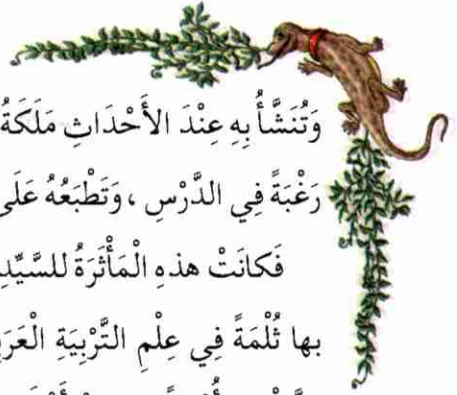 وَتُنَشَّأُ بِهِ عِنْدَ الأَحْدَاثِ مَلَكَةُ
رَغْبَةً فِي الدَّرْسِ ، وَتَطْبَعُهُ عَلَى
فَكانَتْ هذهِ الْمَأْثَرَةُ للسَّيِّدِ
بها ثُلْمَةً فِي عِلْمِ التَّرْبِيَةِ